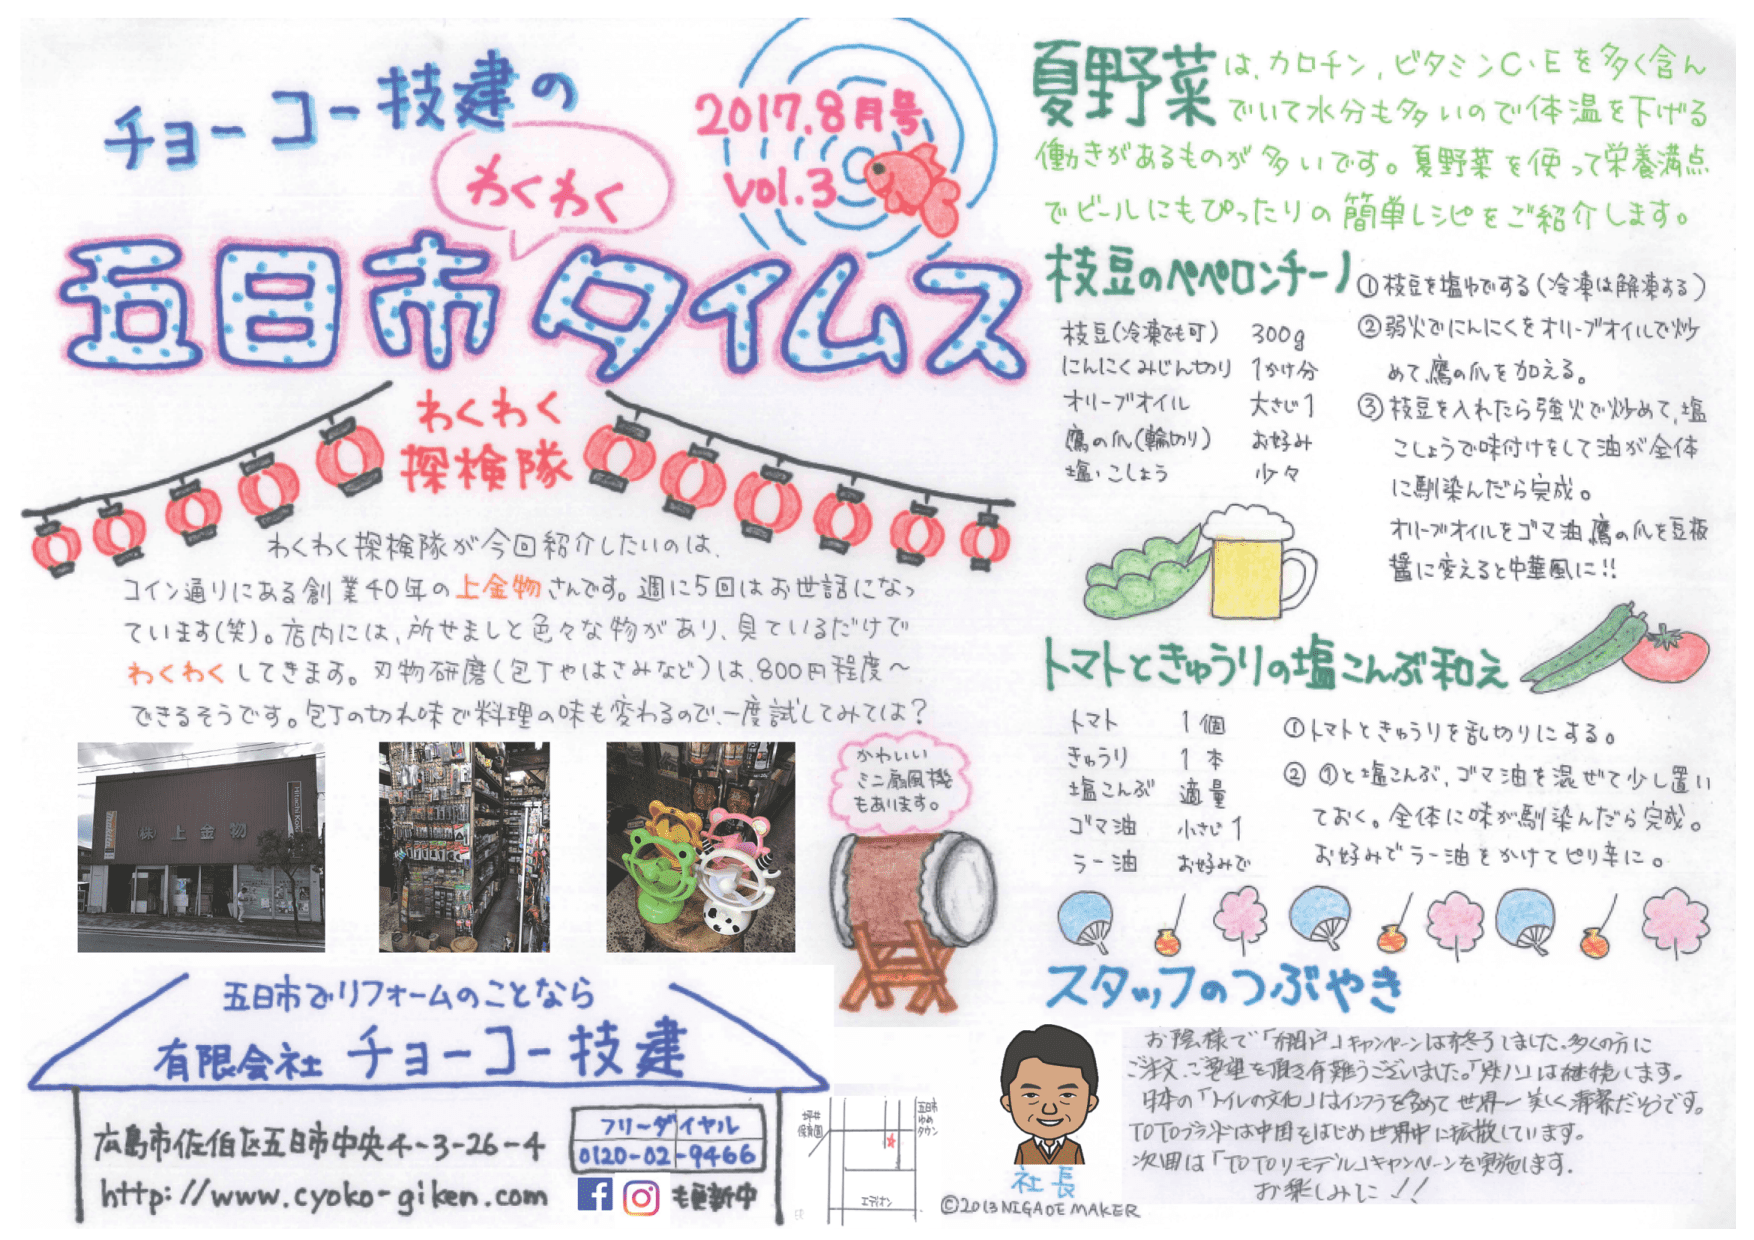 チョーコー技建の
わくわく
2017.8月号
vol.3
五日市タイムス
わくわく
探検隊
わくわく探検隊が今回紹介したいのは、
コイン通りにある創業40年の上金物さんです。週に5回はお世話になっ
ています(笑)。店内には、所せましと色々な物があり、見ているだけで
わくわくしてきます。刃物研磨(包丁やはさみなど)は、800円程度〜
できるそうです。包丁の切れ味で料理の味も変わるので、一度試してみては？
(株)上金物
makita
Hitachi Koki
かわいい
ミニ扇風機
もあります。
五日市でリフォームのことなら
有限会社 チョーコー技建
広島市佐伯区五日市中央4-3-26-4
http://www.cyoko-giken.com
フリーダイヤル
0120-02-9466
も更新中
坪井
保育園
五日市
ゆめ
タウン
エディオン
夏野菜は、カロチン，ビタミンC・Eを多く含ん
でいて水分も多いので体温を下げる
働きがあるものが多いです。夏野菜を使って栄養満点
でビールにもぴったりの簡単レシピをご紹介します。
枝豆のペペロンチーノ
枝豆(冷凍でも可) 300g
にんにくみじん切り 1かけ分
オリーブオイル 大さじ1
鷹の爪(輪切り) お好み
塩・こしょう 少々
①枝豆を塩ゆでする(冷凍は解凍する)
②弱火でにんにくをオリーブオイルで炒
めて、鷹の爪を加える。
③枝豆を入れたら強火で炒めて、塩
こしょうで味付けをして油が全体
に馴染んだら完成。
オリーブオイルをゴマ油、鷹の爪を豆板
醤に変えると中華風に!!
トマトときゅうりの塩こんぶ和え
トマト 1個
きゅうり 1本
塩こんぶ 適量
ゴマ油 小さじ1
ラー油 お好みで
①トマトときゅうりを乱切りにする。
②①と塩こんぶ、ゴマ油を混ぜて少し置い
ておく。全体に味が馴染んだら完成。
お好みでラー油をかけてピリ辛に。
スタッフのつぶやき
お陰様で「網戸」キャンペーンは終了しました。多くの方に
ご注文、ご要望を頂き有難うございました。「炭八」は継続します。
日本の「トイレの文化」はインフラを含めて世界一美しく清潔だそうです。
TOTOブランドは中国をはじめ世界中に拡散しています。
次回は「TOTOリモデル」キャンペーンを実施します。
お楽しみに!!
社長
©2013 NIGAOE MAKER